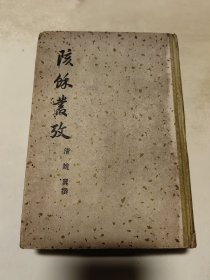 陔餘叢攷
清 趙翼撰